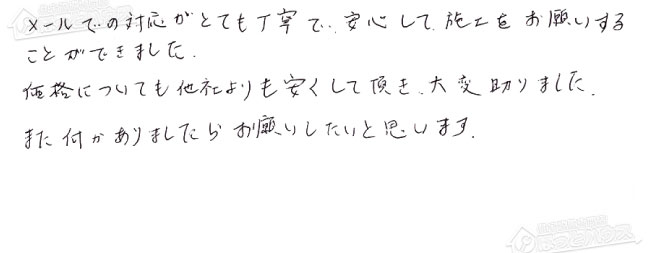 メールでの対応がとても丁寧で、安心して施工をお願いする
ことができました。
価格についても他社よりも安くして頂き、大変助りました。
また何かありましたらお願いしたいと思います。